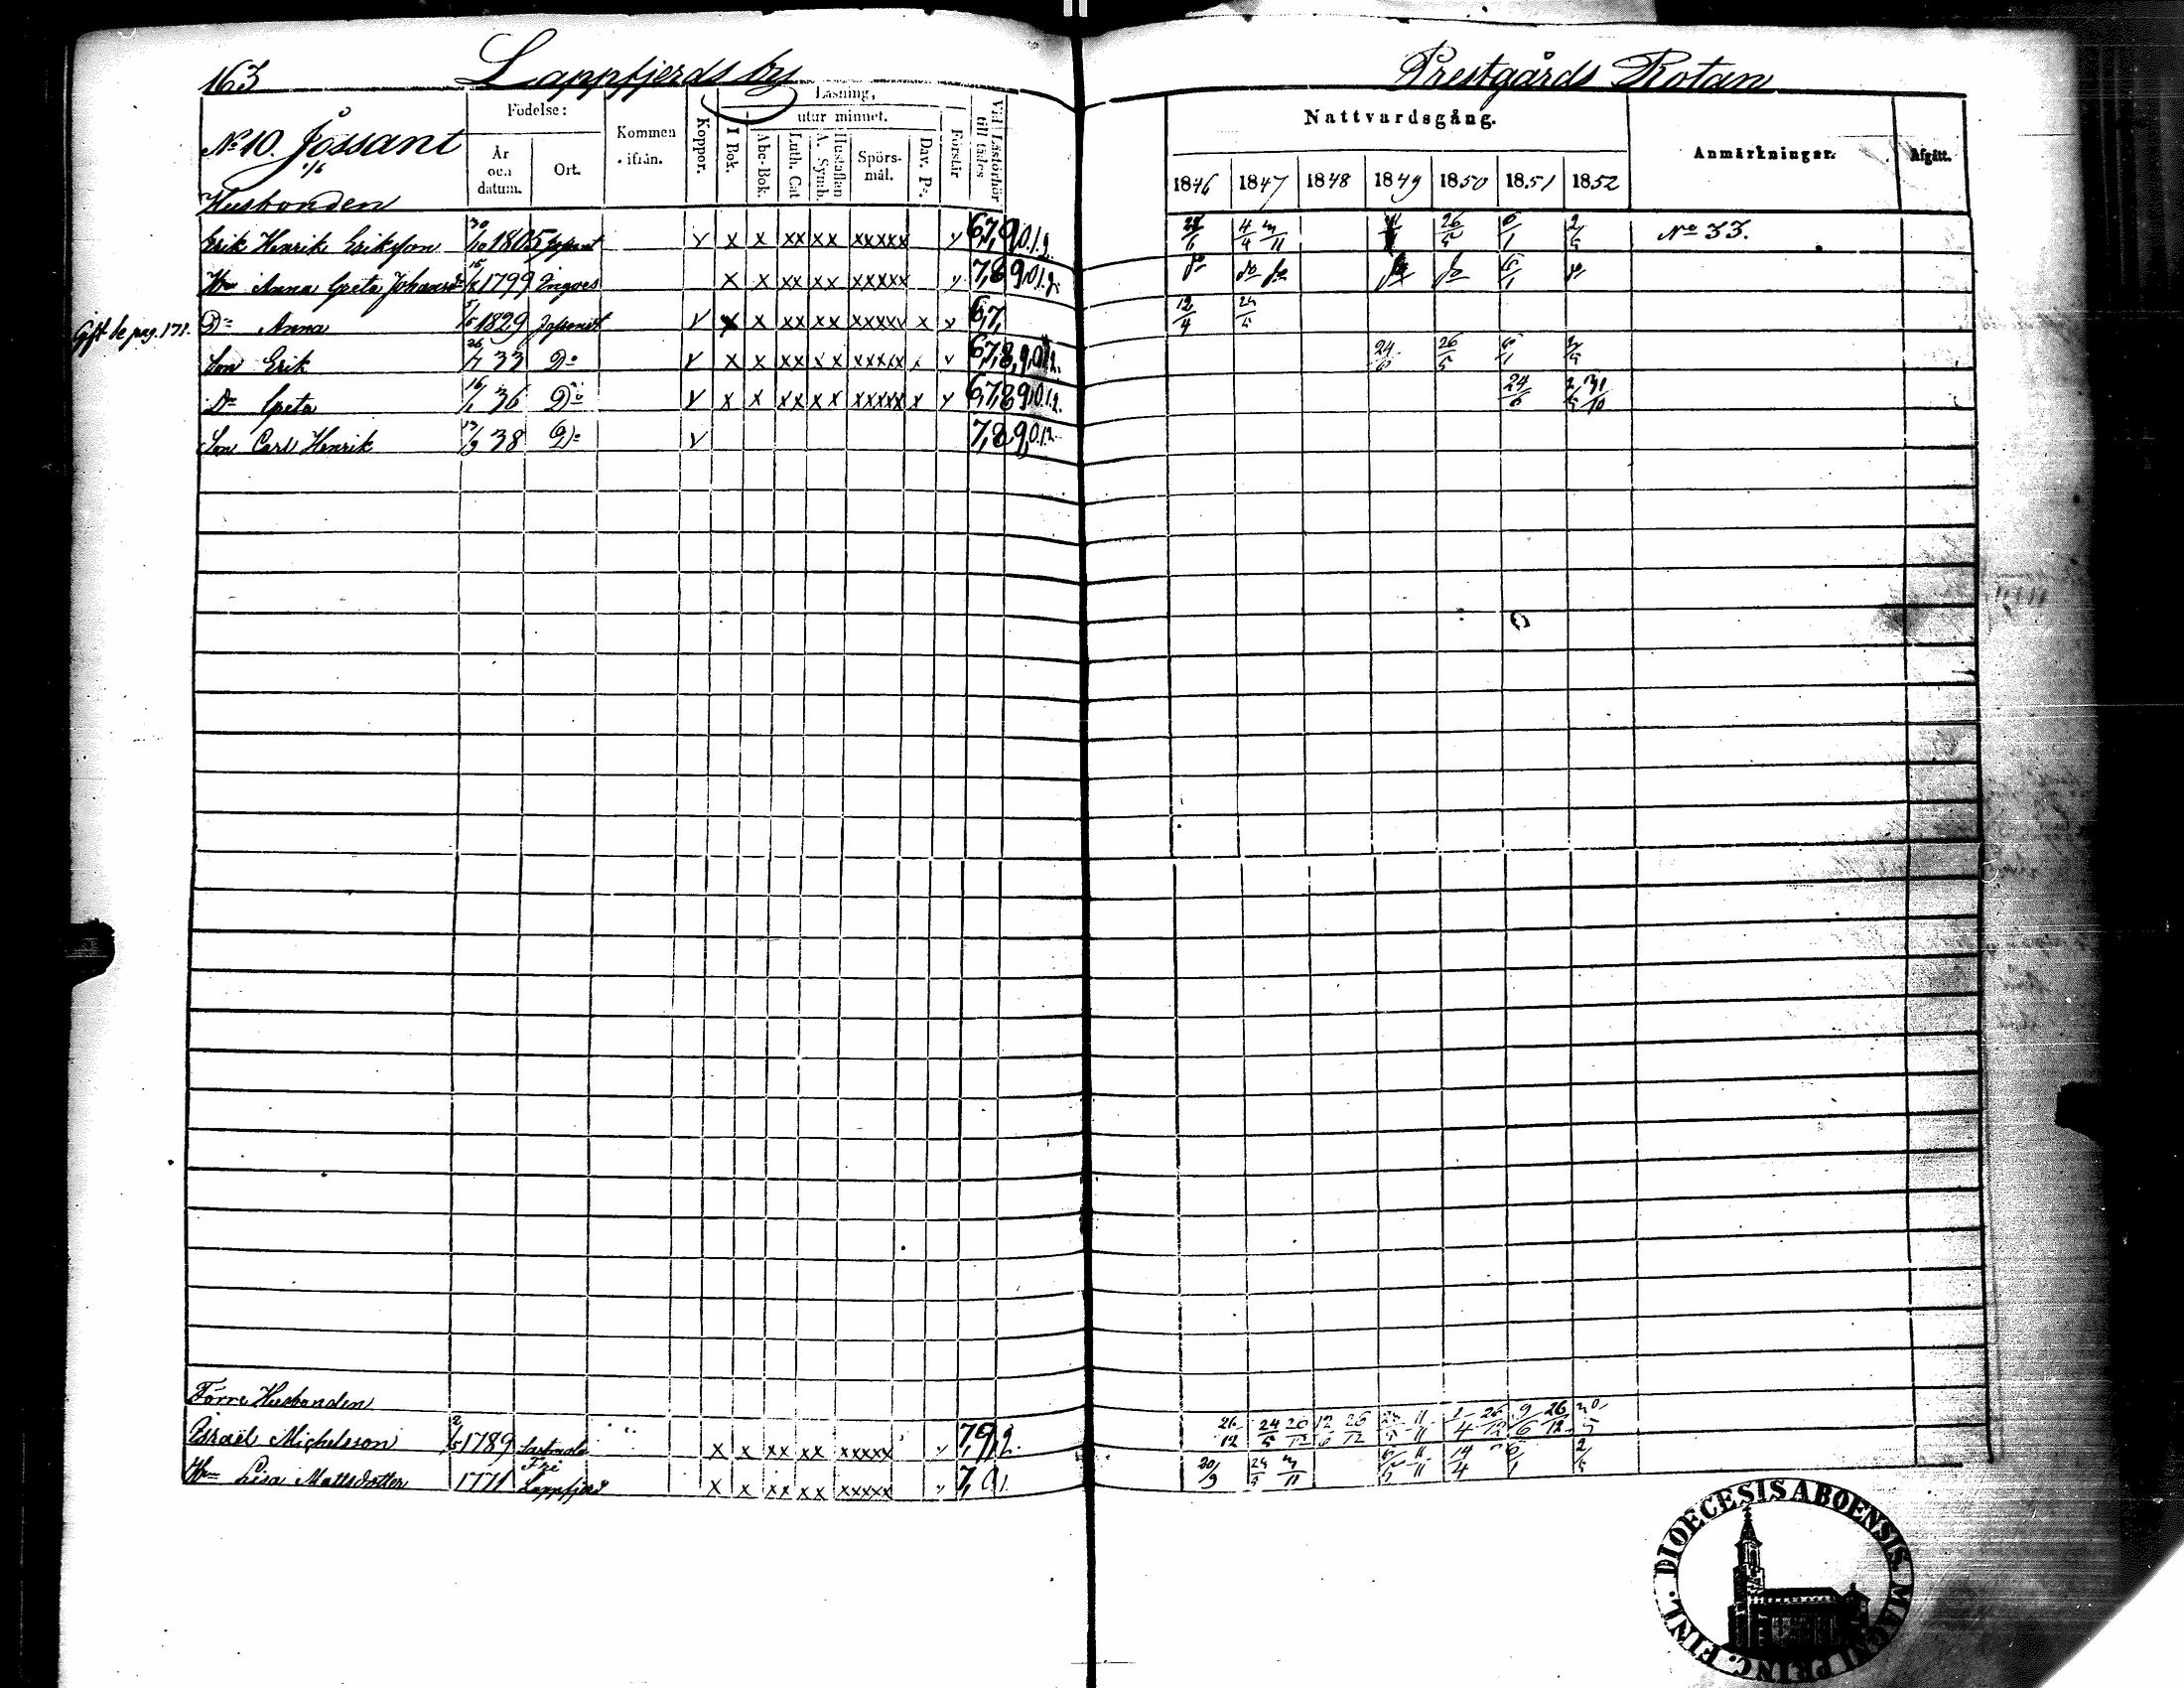 163 Lappfjerds by Prestgårds Rotan
Nº 10. Jossant
1/6
Födelse:
År och datum.
Ort.
Kommen ifrån.
Koppor.
Läsning,
I Bok.
utur minnet.
Abc-Bok.
Luth. Cat
Hustaflan A. Symb.
Spörs-mål.
Dav. Ps.
Förstår
Vid Läsförhör till städes
Nattvardsgång.
1846 1847 1848 1849 1850 1851 1852
Anmärkningar.
Afgått.
Husbonden
Erik Henrik Eriksson 30/10 1805 v x x xx xx xxxxx v 6,7,9,0,1,2. 26/5 6/1 2/5 Nº 33.
Hu Anna Greta Johansdr 1799 x x xx xx xxxxx v 7,8,9,0,1,2. do do do do do 6/1 do
Gift se pag. 171.
Dr Anna 5/5 1829 v x x xx xx xxxxx x v 6,7, 12/4 24/5
Son Erik 26/7 33 Do v x x xx xx xxxxx x v 6,7,8,9,0,1,2. 26/5 6/1 2/5
Dr Greta 16/1 36 Do v x x xx xx xxxxx x v 6,7,8,9,0,1,2. 24/6 2/5 31/10
Son Carl Henrik 13/9 38 Do v 7,8,9,0,1,2.
Förre Husbonden
Israel Michelsson 2/5 1789 x x xx xx xxxxx v 7,9,2. 26/12 24/5 26/12 12/6 26/12 9/6 26/12
Hu Lisa Mattsdotter 1771 Lappfjerd x x xx xx xxxxx v 7,0,1. 20/9 24/5 14/4 6/1 2/5
DIOECESIS ABOENSIS. MAGNI PRINC. FINL.